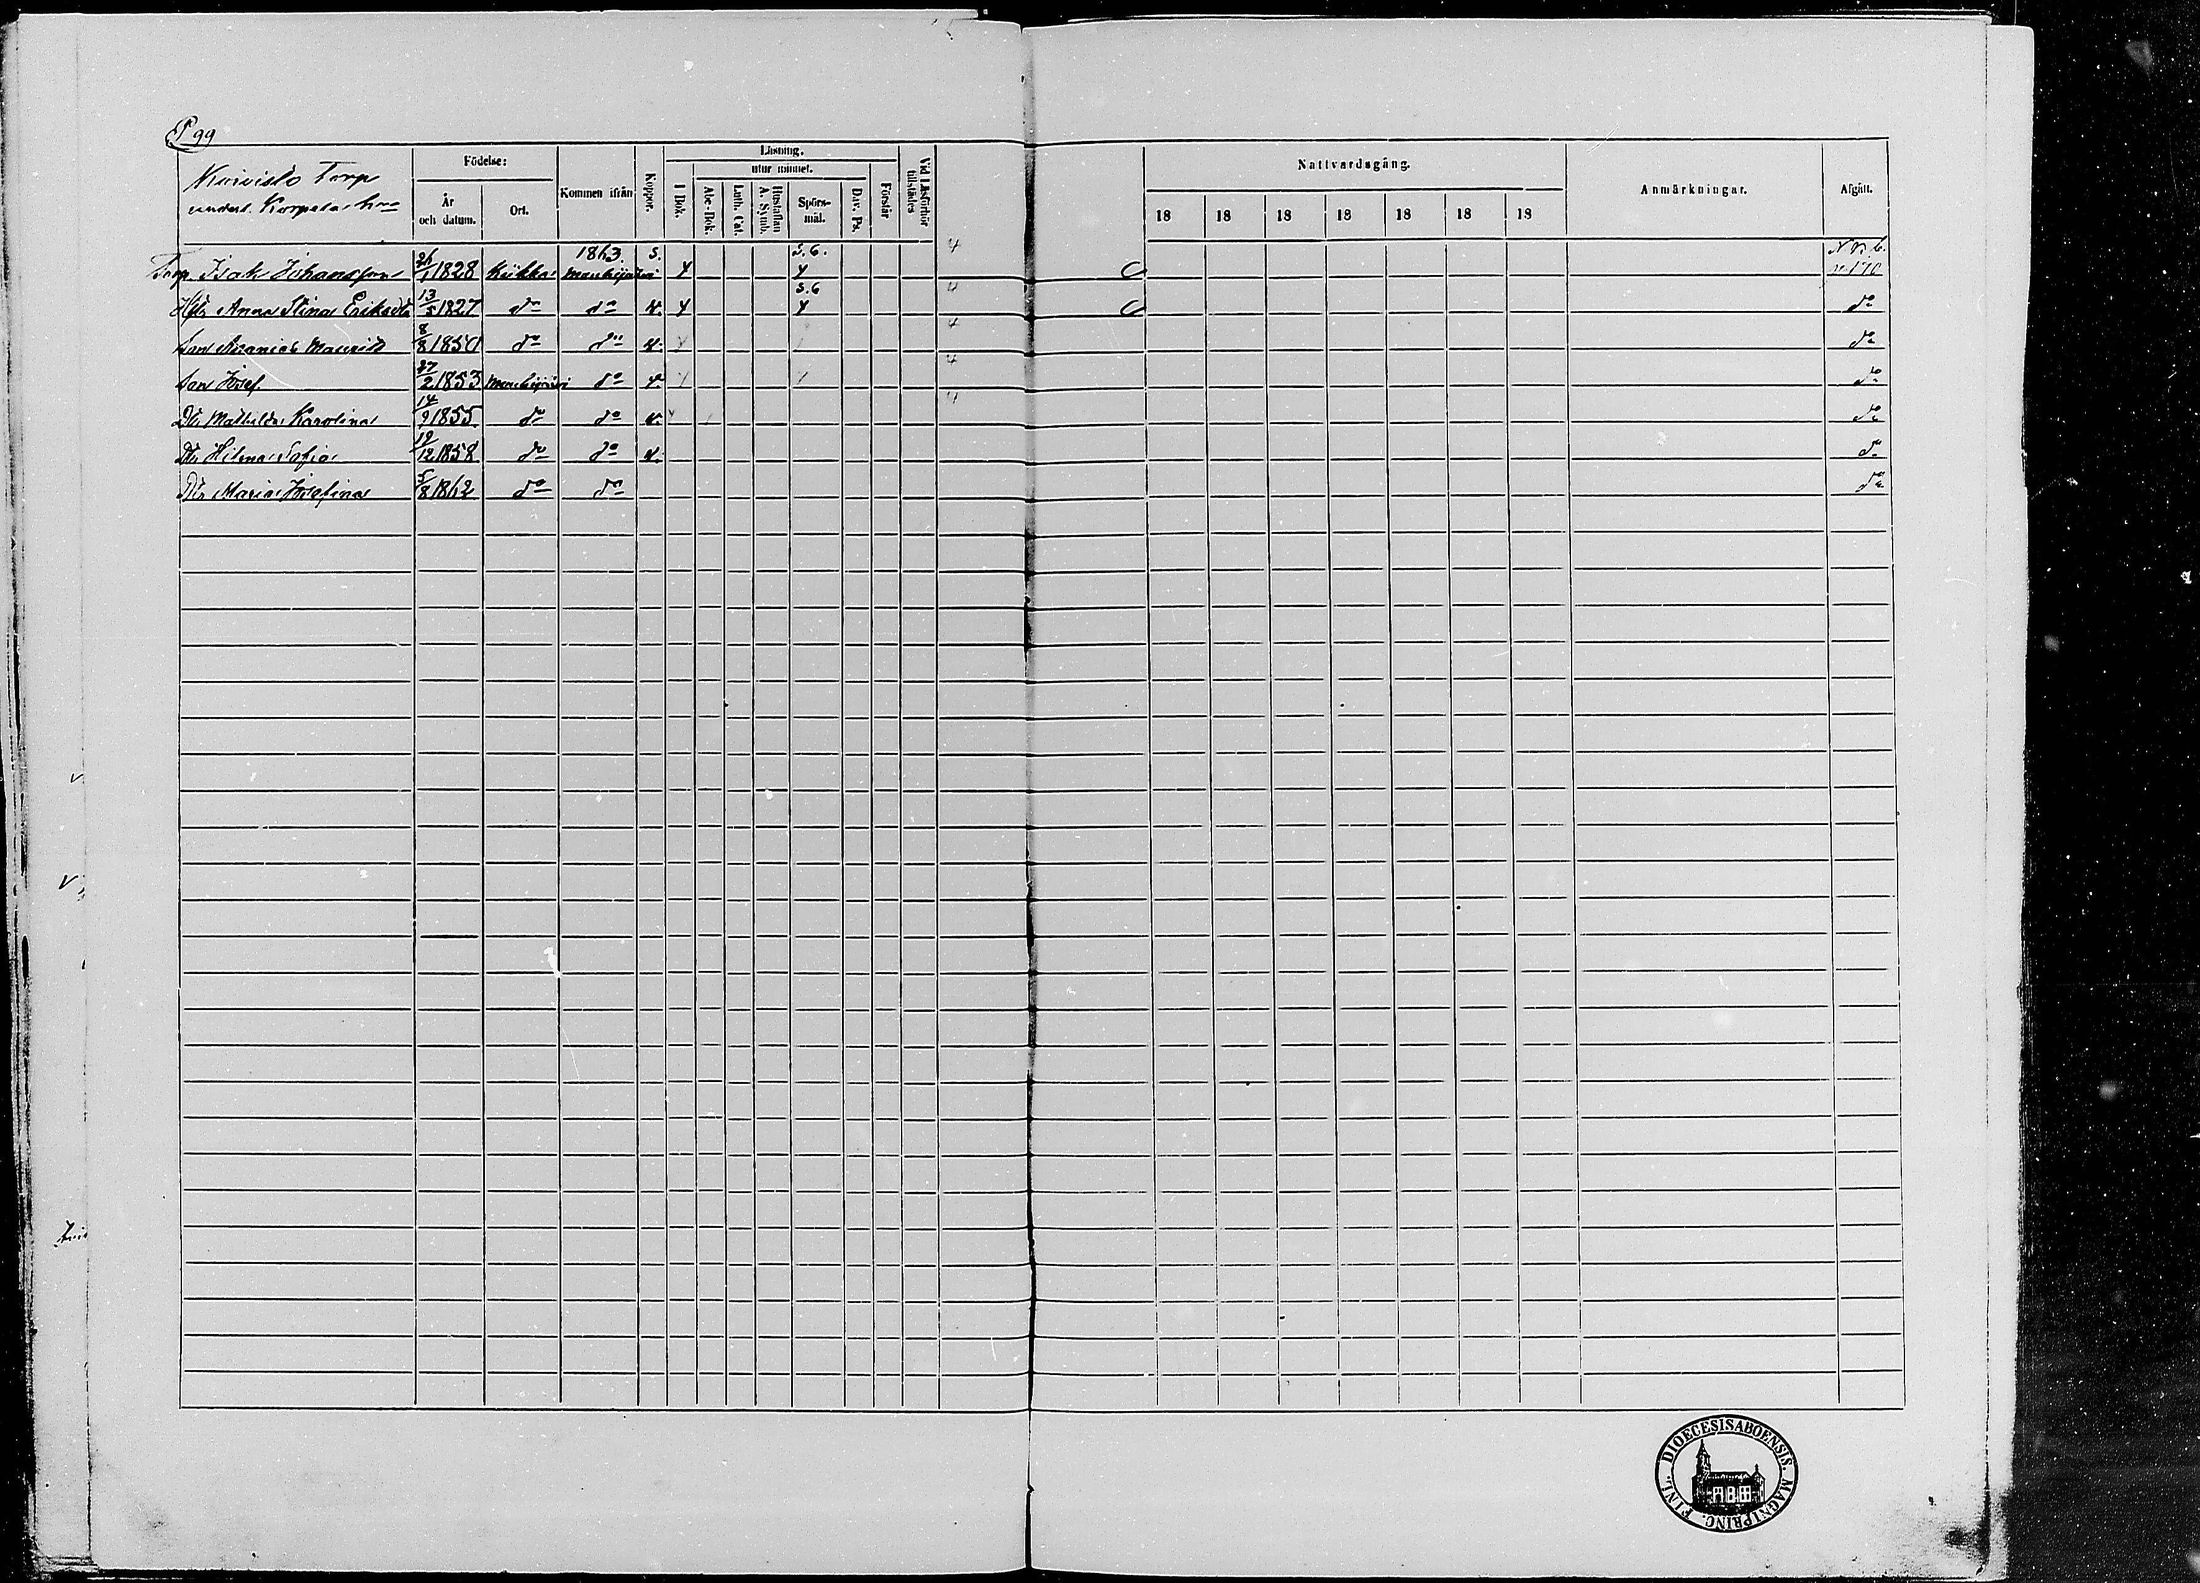 P 99
Koivisto Torp
underl. Korpela hn
Födelse:
År och datum.
Ort.
Kommen ifrån
Koppor.
Läsning.
I Bok.
utur minnet.
Abc-Bok.
Luth. Cat.
Hustaflan A. Symb.
Spörsmål.
Dav. Ps.
Förstår
Vid Läsförhör tillstädes
Nattvardsgång.
18 18 18 18 18 18 18
Anmärkningar.
Afgått.
Torp. Isak Johansson 26/1 1828 Keikka 1863. Mouhijärvi s. S. 6. 4 N. B. b. 170
Hu Anna Stina Eriksdr 13/5 1827 do do v. S. 6 4 do
Son Ananias Mauritz 8/8 1850 do do v. 4 do
Son Josef 27/2 1853 Mouhijärvi do v. 4 do
Dtr Mathilda Karolina 14/9 1855 do do v. 4 do
Dtr Hilma Sofia 19/12 1858 do do v. do
Dtr Maria Josefina 5/8 1862 do do do
DIOECESIS ABOENSIS. MAGNI PRINC. FINL.